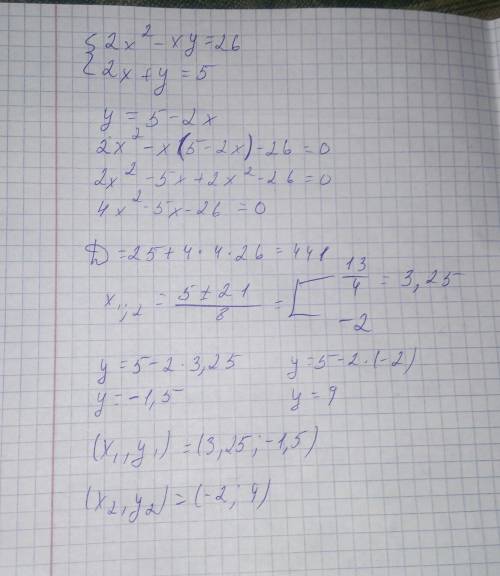 { 2x² - xy = 26
{ 2x + y = 5
y = 5 - 2x
2x² - x(5 - 2x) - 26 = 0
2x² - 5x + 2x² - 26 = 0
4x² - 5x - 26 = 0
D = 25 + 4 · 4 · 26 = 441
x₁;₂ = (5 ± 21)/8 = [ 13/4 = 3,25
-2
y = 5 - 2 · 3,25    y = 5 - 2 · (-2)
y = -1,5    y = 9
(x₁, y₁) = (3,25; -1,5)
(x₂, y₂) = (-2; 9)